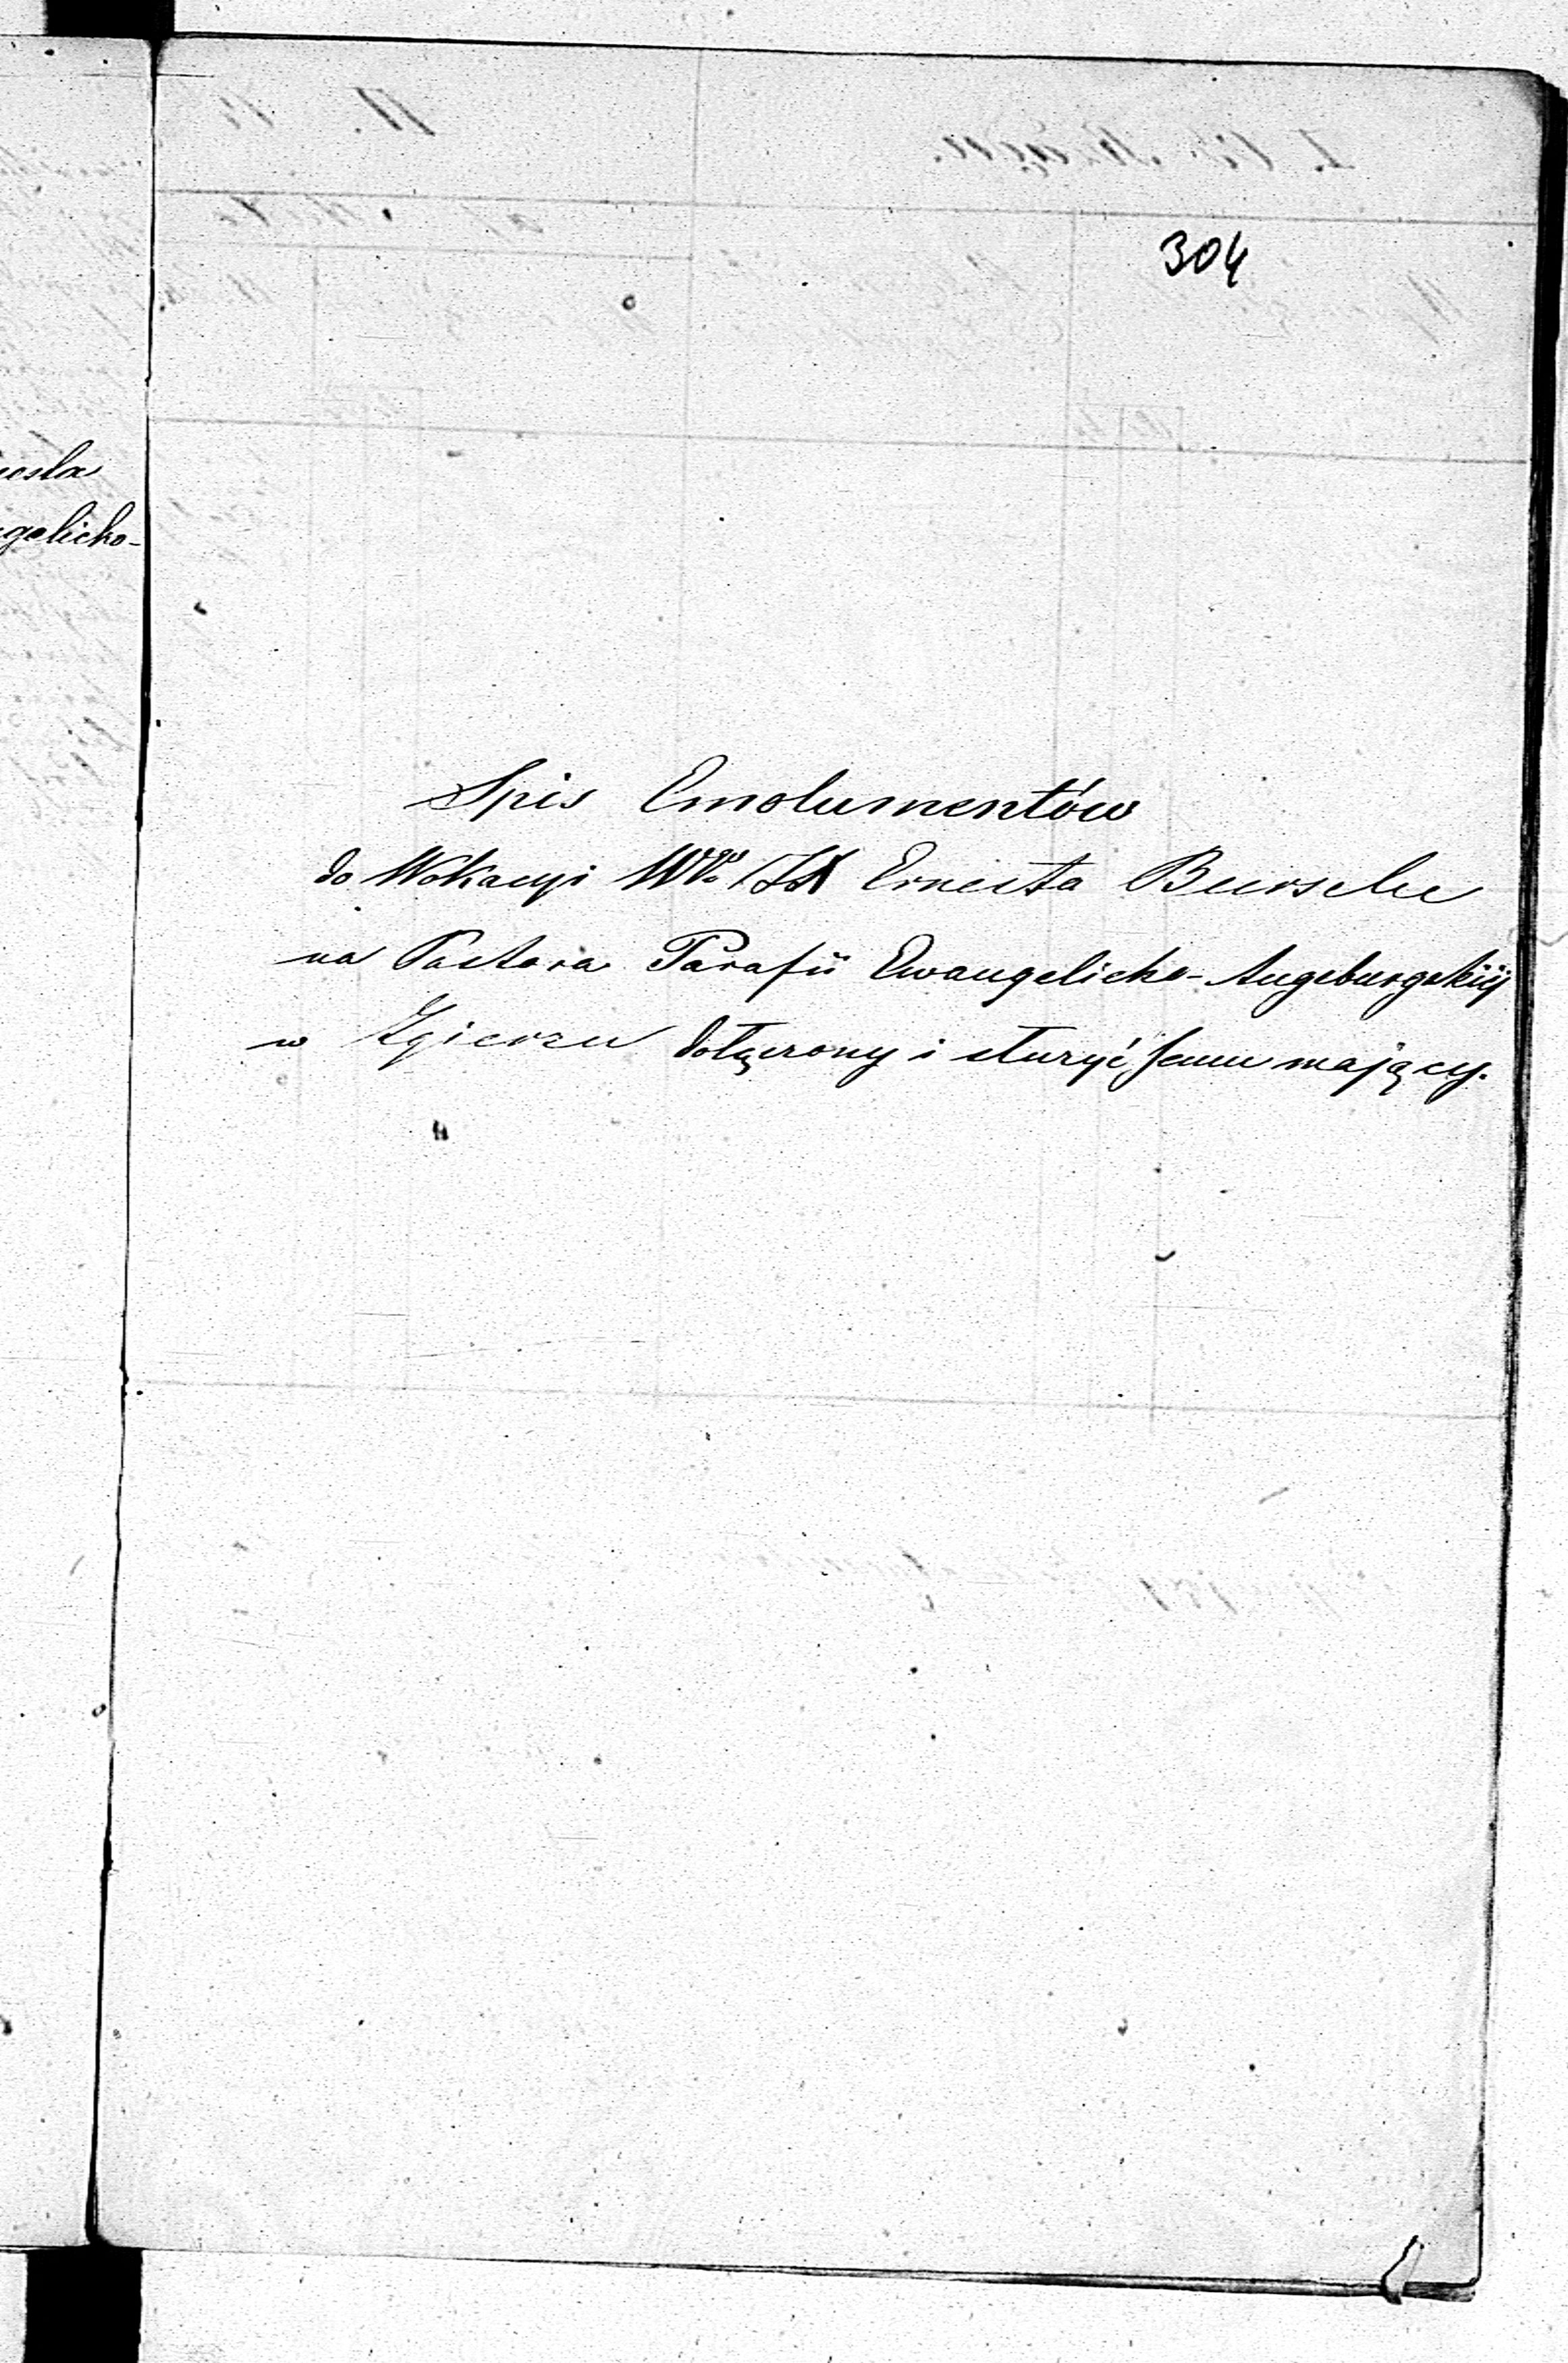 304
Spis Emolumentów
do Wokacyi WWgo JX Ernesta Bursche
na Pastora Parafii Ewangelicko-Augsburgskiij
w Zgierzu dołączony i służyć Jemu mający.
gelicko-